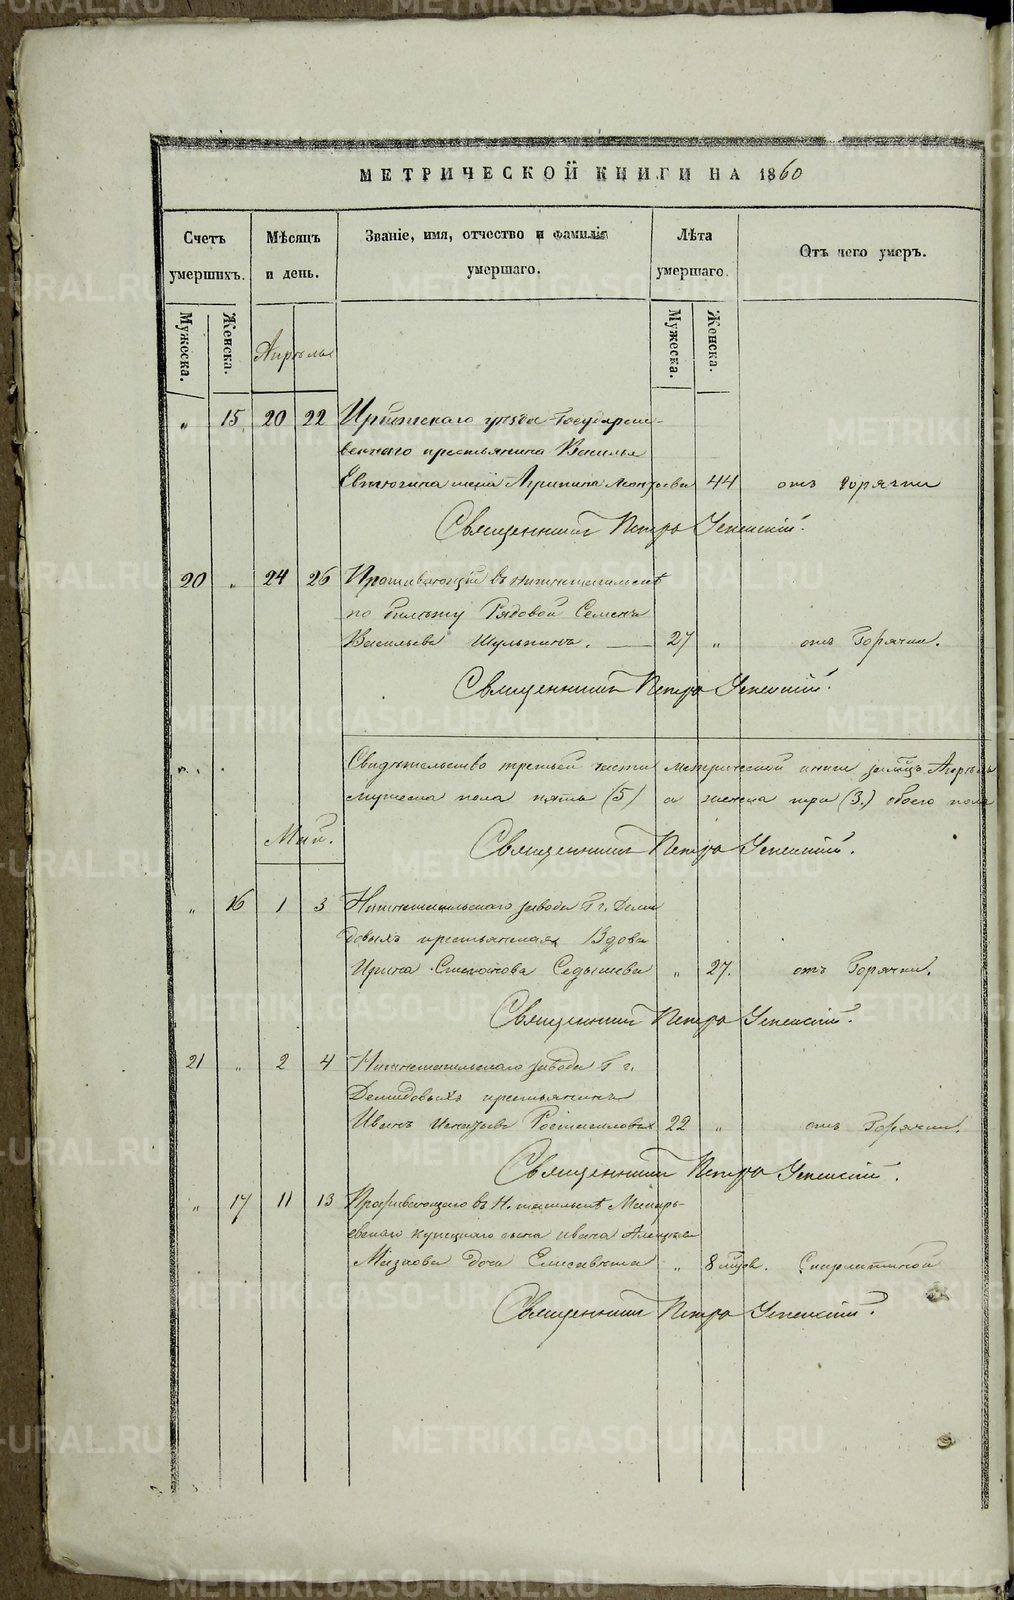 МЕТРИЧЕСКОЙ КНИГИ НА 1860
Счетъ умершихъ.
Мѣсяцъ и день.
Званіе, имя, отчество и фамилія умершаго.
Лѣта умершаго.
Отъ чего умеръ.
Мужеска.
Женска.
Мужеска.
Женска.
Апрѣль
„ 15 20 22 Ирбитскаго уѣзда Государст-
веннаго крестьянина Василья
Евтюгина жена Агрипина Леонтьева 44 отъ горячки
Священникъ Петръ Успенскій.
20 „ 24 26 Проживающій въ Нижнетагильскѣ
по билету Рядовой Семенъ
Васильевъ Шульгинъ. 27 „ отъ Горячки.
Священникъ Петръ Успенскій.
Свидѣтельство третьей части метрической книги за мѣсяцъ Апрѣль
мужеска пола пять (5) а женска три (3.) обоего пола
Май.
Священникъ Петръ Успенскій.
„ 16 1 3 Нижнетагильскаго завода Г г. Деми
довыхъ крестьянская Вдова
Ирина Степанова Седышева „ 27. отъ Горячки.
Священникъ Петръ Успенскій.
21 „ 2 4 Нижнетагильскаго завода Г г.
Демидовыхъ крестьянинъ
Иванъ Игнатьевъ 22 „ отъ Горячки.
Священникъ Петръ Успенскій.
„ 17 11 13 Проживающаго въ Н. тагильскѣ
купецкаго сына Ивана
дочь Елисавета „ 8 мцев. Скарлатиной
Священникъ Петръ Успенскій.
METRIKI.GASO-URAL.RU